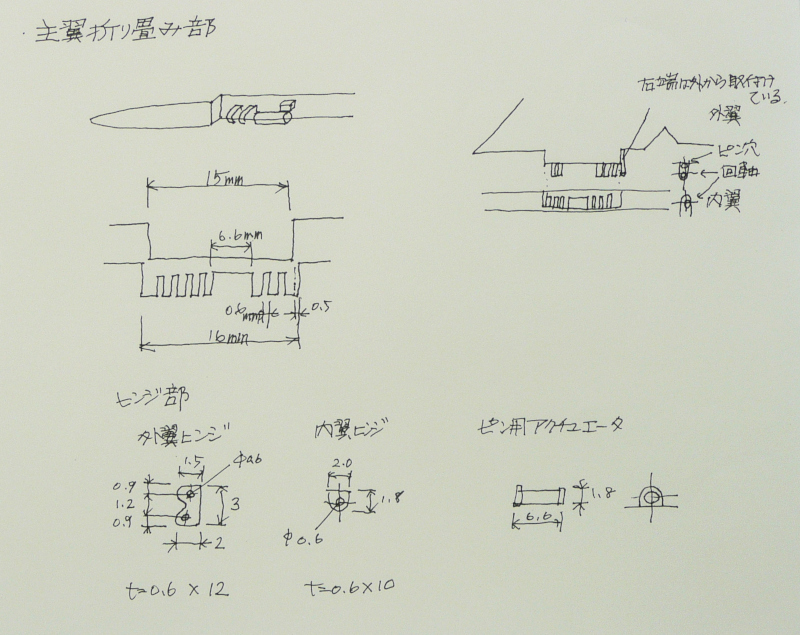 ・主翼折り畳み部
右端は外から取付け
ている.
外翼
ピン穴
回軸
内翼
15mm
6.6mm
0.6
mm
0.5
16mm
ヒンジ部
外翼ヒンジ
1.5
Φ0.6
0.9
1.2
0.9
3
2
t=0.6×12
内翼ヒンジ
2.0
1.8
Φ0.6
t=0.6×10
ピン用アクチュエータ
1.8
6.6